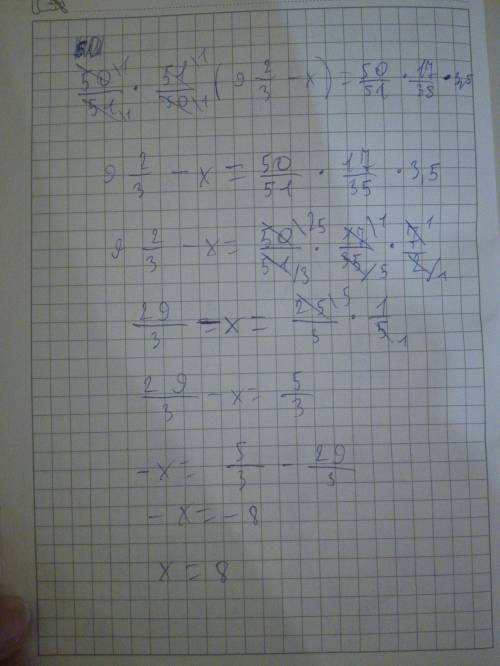 50/51 · 51/50 (9 2/3 - x) = 50/51 · 17/35 · 3,5
9 2/3 - x = 50/51 · 17/35 · 3,5
9 2/3 - x = 50\25/51/3 · 17\1/35/5 · 7\1/2/1
29/3 - x = 25\5/3 · 1/5 1
29/3 - x = 5/3
-x = 5/3 - 29/3
-x = -8
x = 8